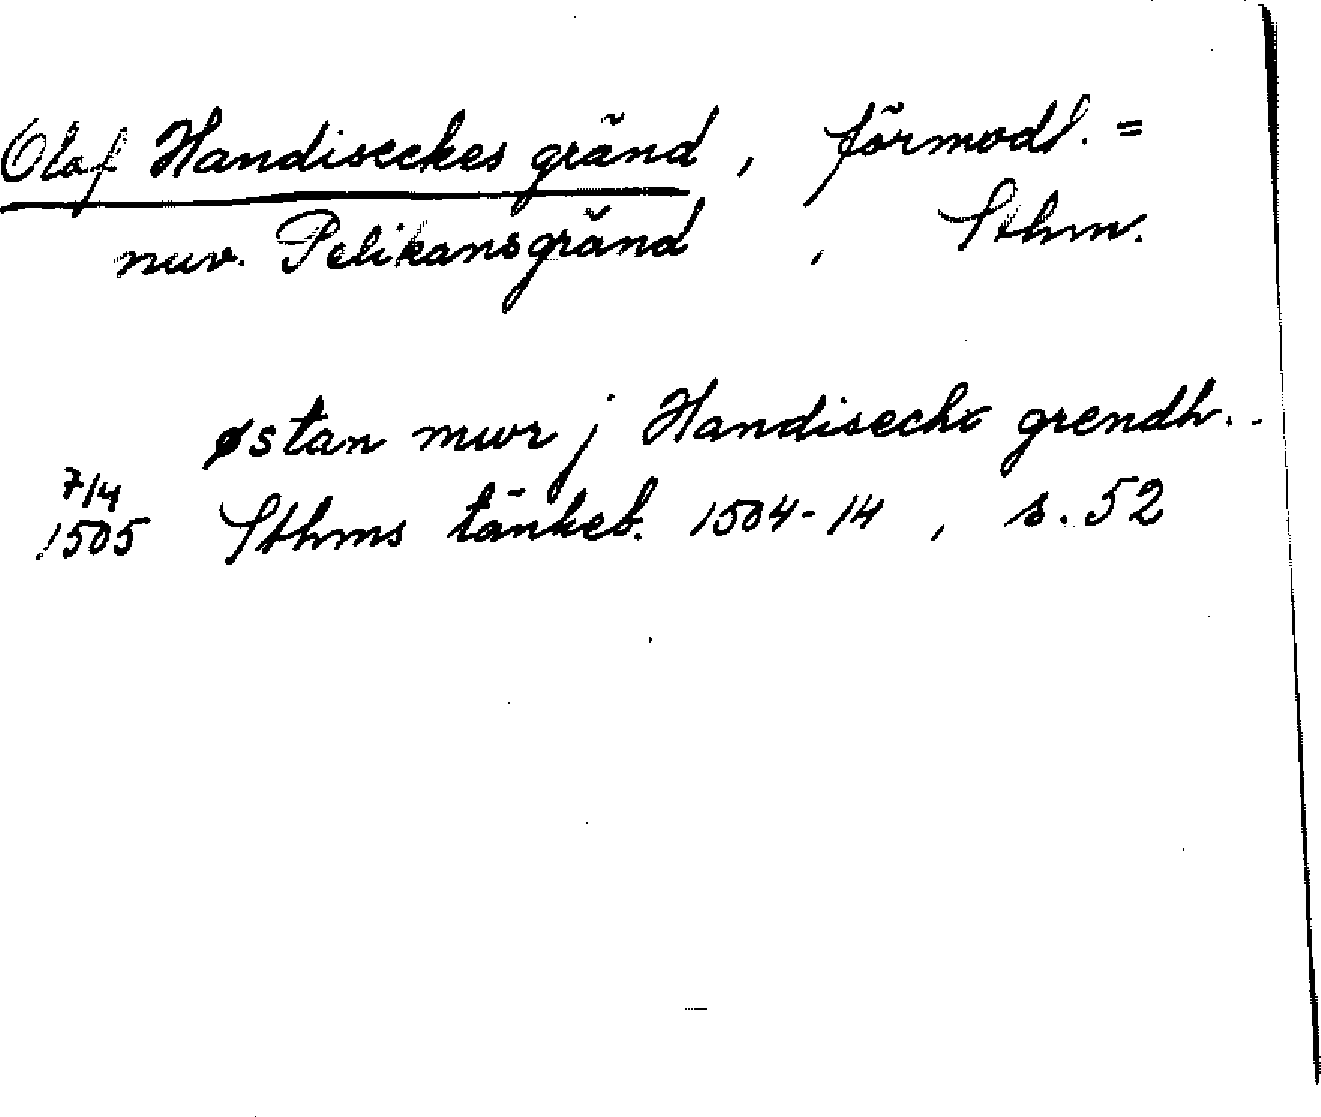 Olaf Handiseckes gränd, förmodl. =
nuv. Pelikansgränd, Sthm.
østan mwr j Handisecks grendh..
7/4
1505 Sthms tänkeb. 1504-14, s. 52